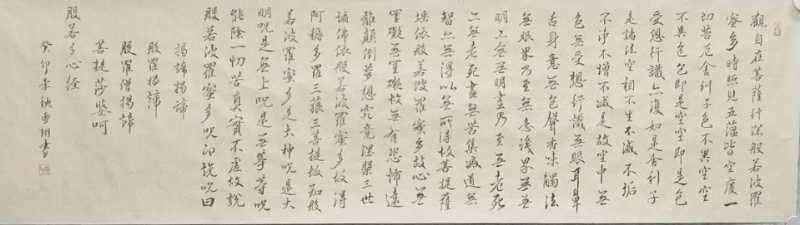 觀自在菩薩行深般若波羅
蜜多時照見五蘊皆空度一
切苦厄舍利子色不異空空
不異色色即是空空即是色
受想行識亦復如是舍利子
是諸法空相不生不滅不垢
不淨不增不減是故空中無
色無受想行識無眼耳鼻
舌身意無色聲香味觸法
無眼界乃至無意識界無無
明亦無無明盡乃至無老死
亦無老死盡無苦集滅道無
智亦無得以無所得故菩提薩
埵依般若波羅蜜多故心無
罣礙無罣礙故無有恐怖遠
離顛倒夢想究竟涅槃三世
諸佛依般若波羅蜜多故得
阿耨多羅三藐三菩提故知般
若波羅蜜多是大神咒是大
明咒是無上咒是無等等咒
能除一切苦真實不虛故說
般若波羅蜜多咒即說咒曰
揭諦揭諦
般羅揭諦
般羅僧揭諦
菩提莎呵
般若多心經
癸卯季秋書